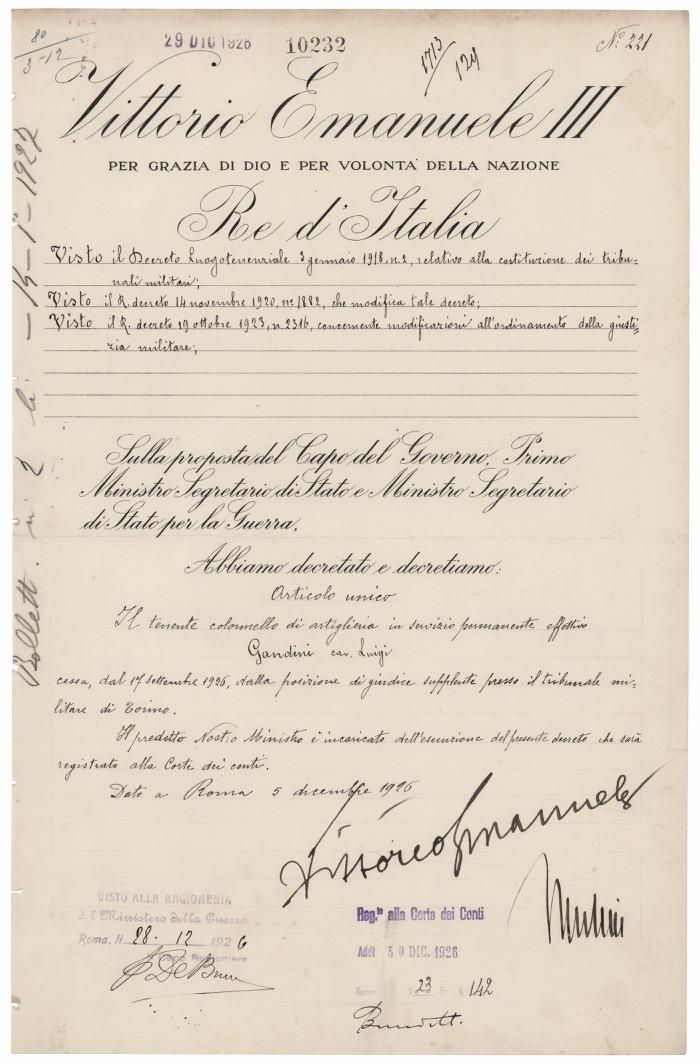 80
3-12
29 DIC 1926
10232
1713/129
N° 221
Vittorio Emanuele III
PER GRAZIA DI DIO E PER VOLONTA' DELLA NAZIONE
Re d'Italia
Visto il Decreto Luogotenenziale 3 gennaio 1918, n. 2, relativo alla costituzione dei tribu=
nali militari;
Visto il R. decreto 14 novembre 1920, n° 1882, che modifica tale decreto;
Visto il R. decreto 19 ottobre 1923, n. 2316, concernente modificazioni all'ordinamento della giusti=
zia militare;
Sulla proposta del Capo del Governo, Primo
Ministro Segretario di Stato e Ministro Segretario
di Stato per la Guerra.
Abbiamo decretato e decretiamo:
Articolo unico
Il tenente colonnello di artiglieria in servizio permanente effettivo
Gandini cav. Luigi
cessa, dal 17 settembre 1926, dalla posizione di giudice supplente presso il tribunale mi=
litare di Torino.
Il predetto Nostro Ministro è incaricato dell'esecuzione del presente decreto che sarà
registrato alla Corte dei conti.
Dato a Roma 5 dicembre 1926
Vittorio Emanuele
Mussolini
VISTO ALLA RAGIONERIA
del Ministero della Guerra
Roma, li 28. 12 1926
Capo Ragioniere
Reg.to alla Corte dei Conti
Addì 30 DIC. 1926
23 142
Bollett. n. 2 li - 14 - 1° - 1927